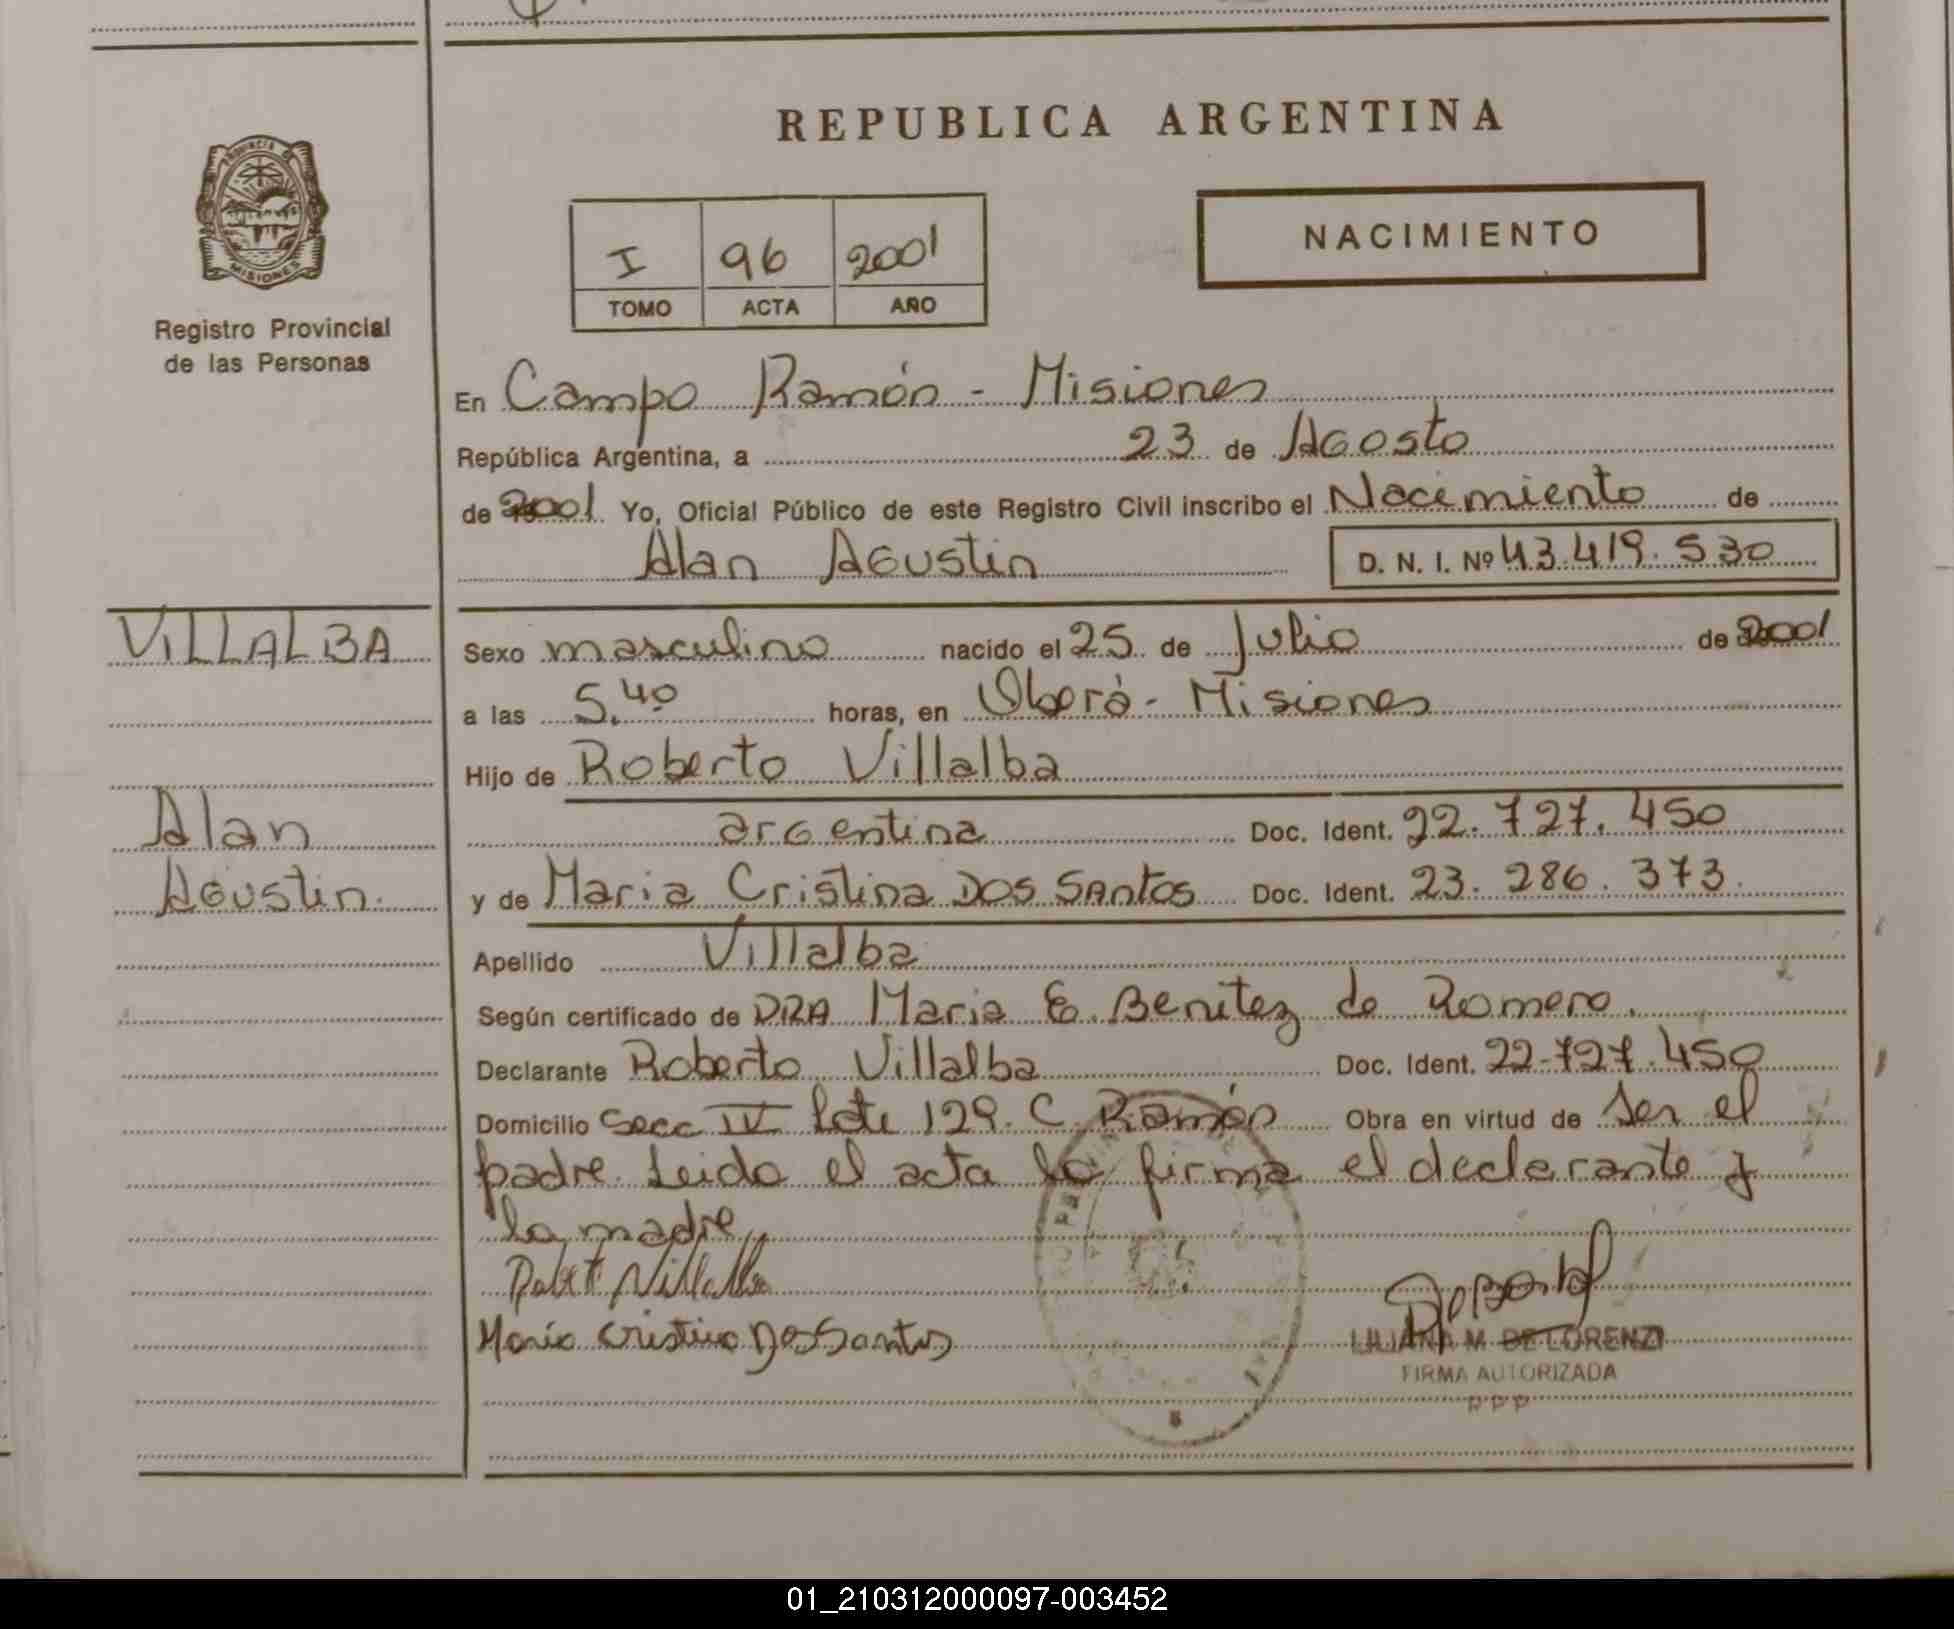 REPUBLICA ARGENTINA
PROVINCIA DE
MISIONES
Registro Provincial
de las Personas
I 96 2001
TOMO ACTA AÑO
NACIMIENTO
En Campo Ramón - Misiones
República Argentina, a 23 de Agosto
de 2001 Yo, Oficial Público de este Registro Civil inscribo el Nacimiento de
Alan Agustin D. N. I. Nº 43.419.530
VILLALBA
Alan
Agustin.
Sexo masculino nacido el 25 de Julio de 2001
a las 5.40 horas, en Oberá - Misiones
Hijo de Roberto Villalba
argentina Doc. Ident. 22.727.450
y de Maria Cristina DOS SAntos Doc. Ident. 23.286.373.
Apellido Villalba
Según certificado de DRA Maria E. Benitez de Romero.
Declarante Roberto Villalba Doc. Ident. 22-727.450
Domicilio Secc IV Lote 129. C. Ramón Obra en virtud de Ser el
padre. Leida el acta la firma el declarante y
la madre
Villalba
Maria Cristina Dos Santos
LILIANA M. DE LORENZI
FIRMA AUTORIZADA
01_210312000097-003452